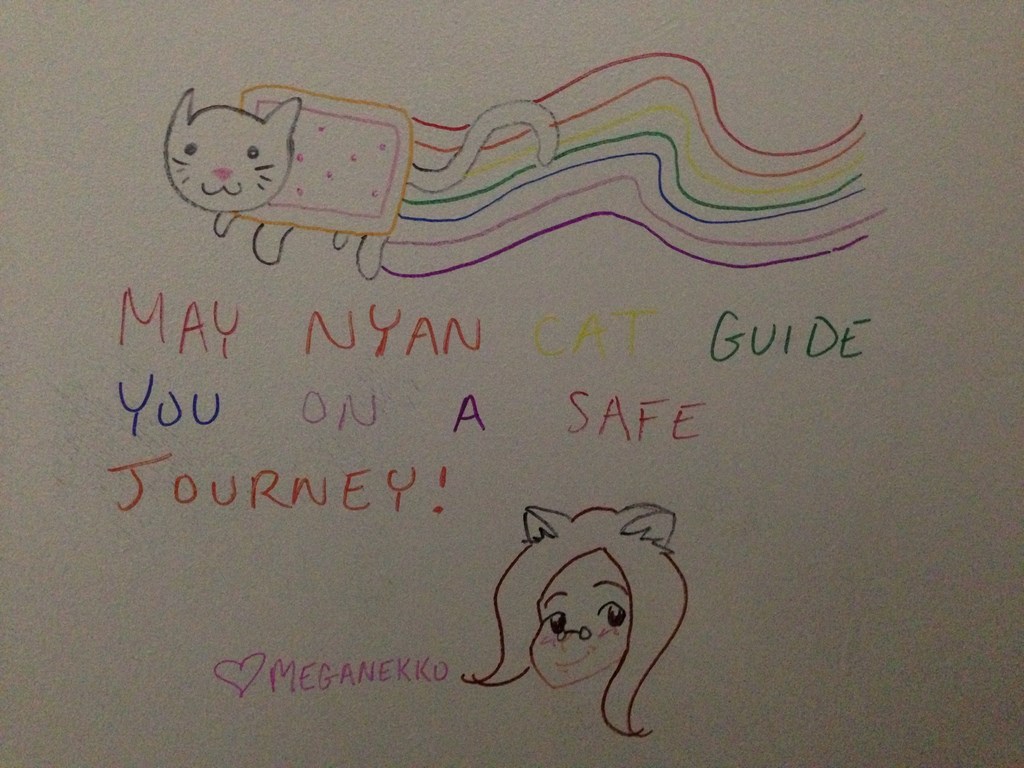 MAY NYAN CAT GUIDE
YOU ON A SAFE
JOURNEY!
♡MEGANEKKO